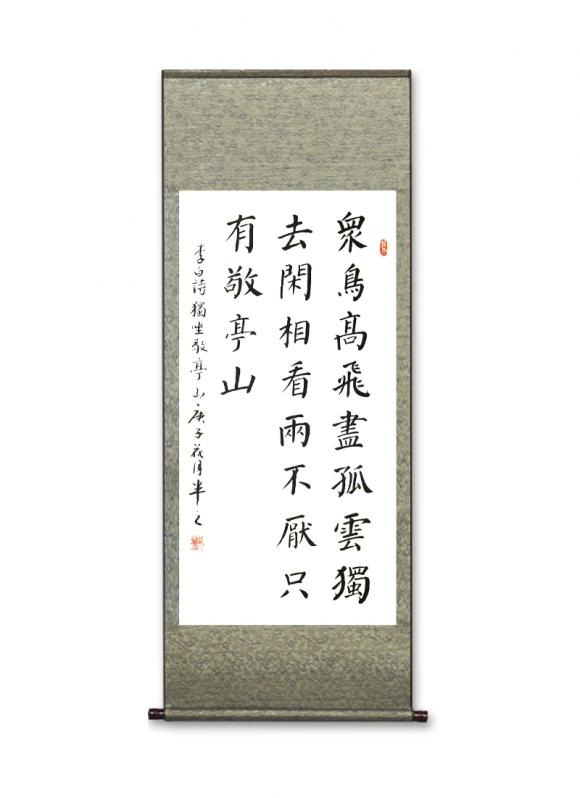 衆鳥髙飛盡孤雲獨
去閑相看兩不厭只
有敬亭山
李白詩獨坐敬亭山庚子月半之